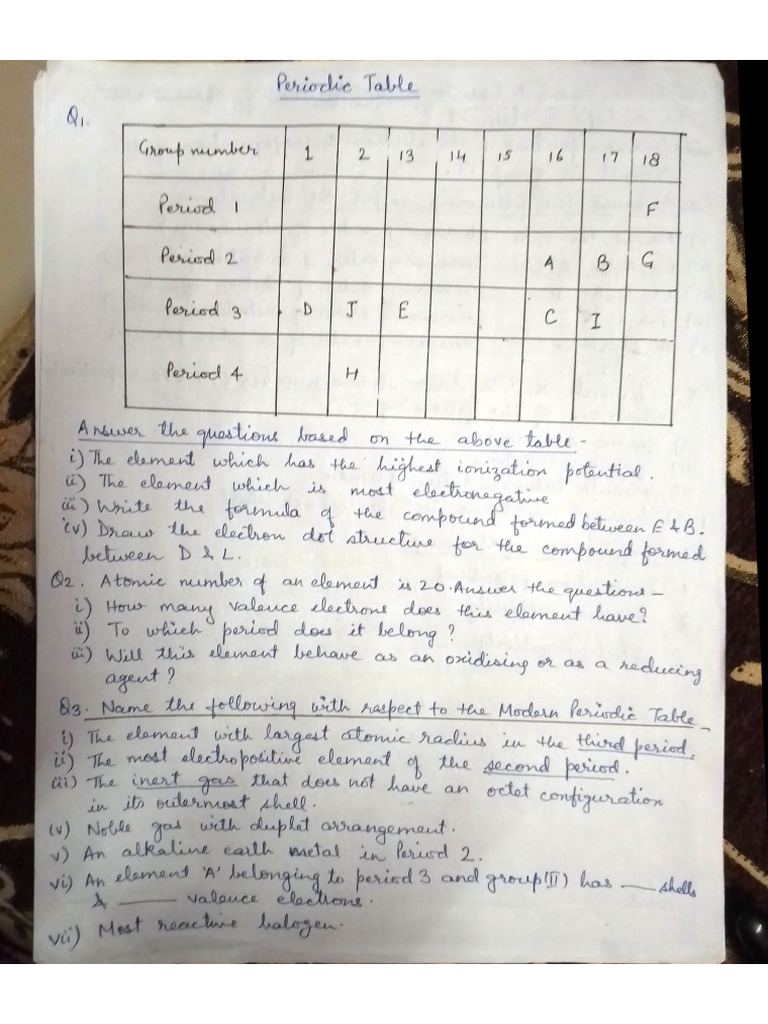 Periodic Table
Q1.
Group number 1 2 13 14 15 16 17 18
Period 1 F
Period 2 A B G
Period 3 D J E C I
Period 4 H
Answer the questions based on the above table -
i) The element which has the highest ionization potential.
ii) The element which is most electronegative
iii) Write the formula of the compound formed between E & B.
iv) Draw the electron dot structure for the compound formed
between D & L.
Q2. Atomic number of an element is 20. Answer the questions -
i) How many valence electrons does this element have?
ii) To which period does it belong?
iii) Will this element behave as an oxidising or as a reducing
agent?
Q3. Name the following with raspect to the Modern Periodic Table -
i) The element with largest atomic radius in the third period.
ii) The most electropositive element of the second period.
iii) The inert gas that does not have an octet configuration
in its outermost shell.
iv) Noble gas with duplet arrangement.
v) An alkaline earth metal in Period 2.
vi) An element 'A' belonging to period 3 and group (II) has ___ shells
& ____ valence electrons.
vii) Most reactive halogen.